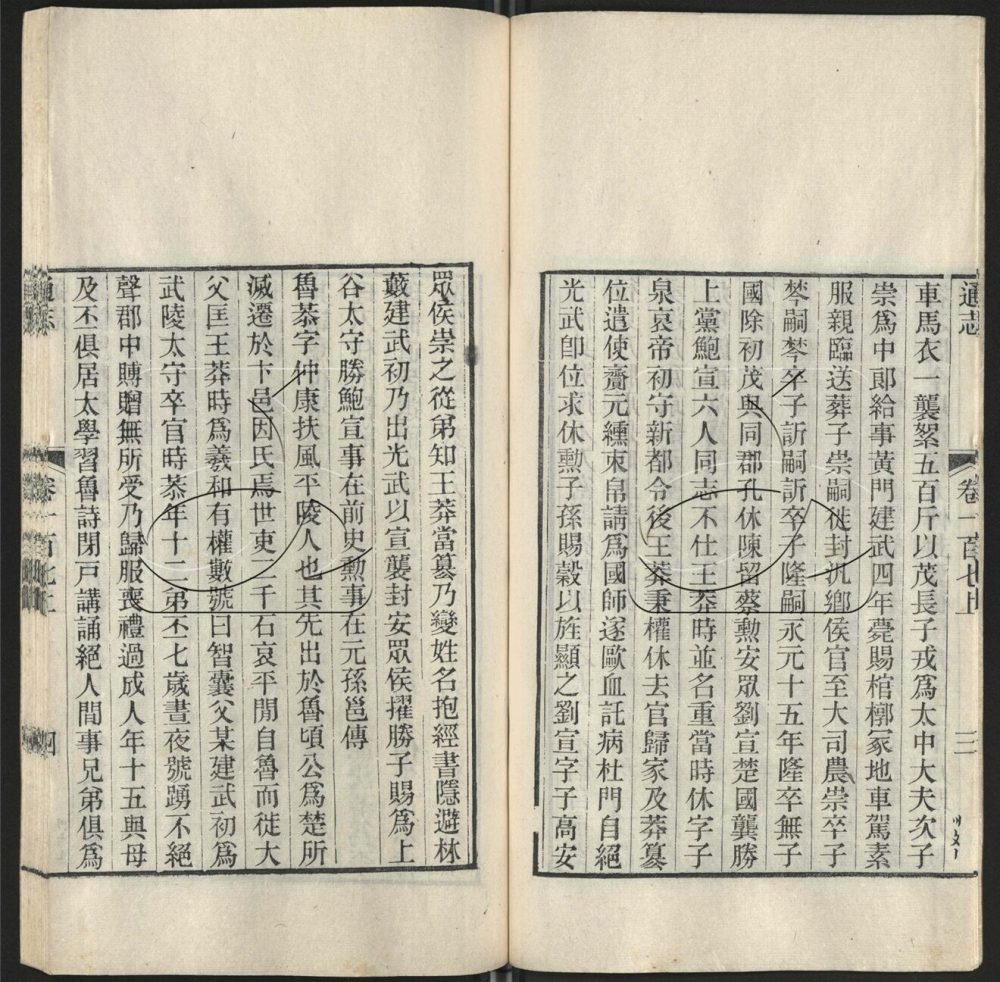 通志 卷一百七上 三
車馬衣一襲絮五百斤以茂長子戎爲太中大夫次子
崇爲中郎給事黃門建武四年薨賜棺槨冢地車駕素
服親臨送葬子崇嗣徙封汎鄉侯官至大司農崇卒子
棽嗣棽卒子訢嗣訢卒子隆嗣永元十五年隆卒無子
國除初茂與同郡孔休陳留蔡勲安眾劉宣楚國龔勝
上黨鮑宣六人同志不仕王莽時並名重當時休字子
泉哀帝初守新都令後王莽秉權休去官歸家及莽篡
位遣使齎元纁束帛請爲國師遂歐血託病杜門自絕
光武卽位求休勲子孫賜穀以旌顯之劉宣字子高安
眾侯崇之從弟知王莽當篡乃變姓名抱經書隱避林
藪建武初乃出光武以宣襲封安眾侯擢勝子賜爲上
谷太守勝鮑宣事在前史勲事在元孫邕傳
魯恭字仲康扶風平陵人也其先出於魯頃公爲楚所
滅遷於卞邑因氏焉世吏二千石哀平閒自魯而徙大
父匡王莽時爲羲和有權數號曰智囊父某建武初爲
武陵太守卒官時恭年十二弟丕七歲晝夜號踴不絕
聲郡中賻贈無所受乃歸服喪禮過成人年十五與母
及丕俱居太學習魯詩閉戸講誦絕人間事兄弟俱爲
通志